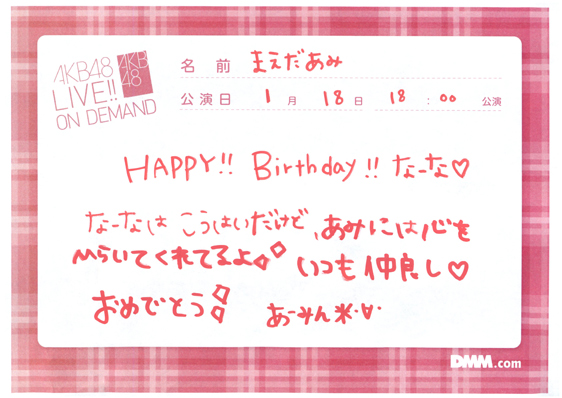 AKB48
LIVE!!
ON DEMAND
AKB
48
名前 まえだあみ
公演日 1月 18日 18:00 公演
HAPPY!! Birthday!! なーな♡
なーなは こうはいだけど、あみには心を
ひらいてくれてるよ いつも仲良し♡
おめでとう
あーみん
DMM.com